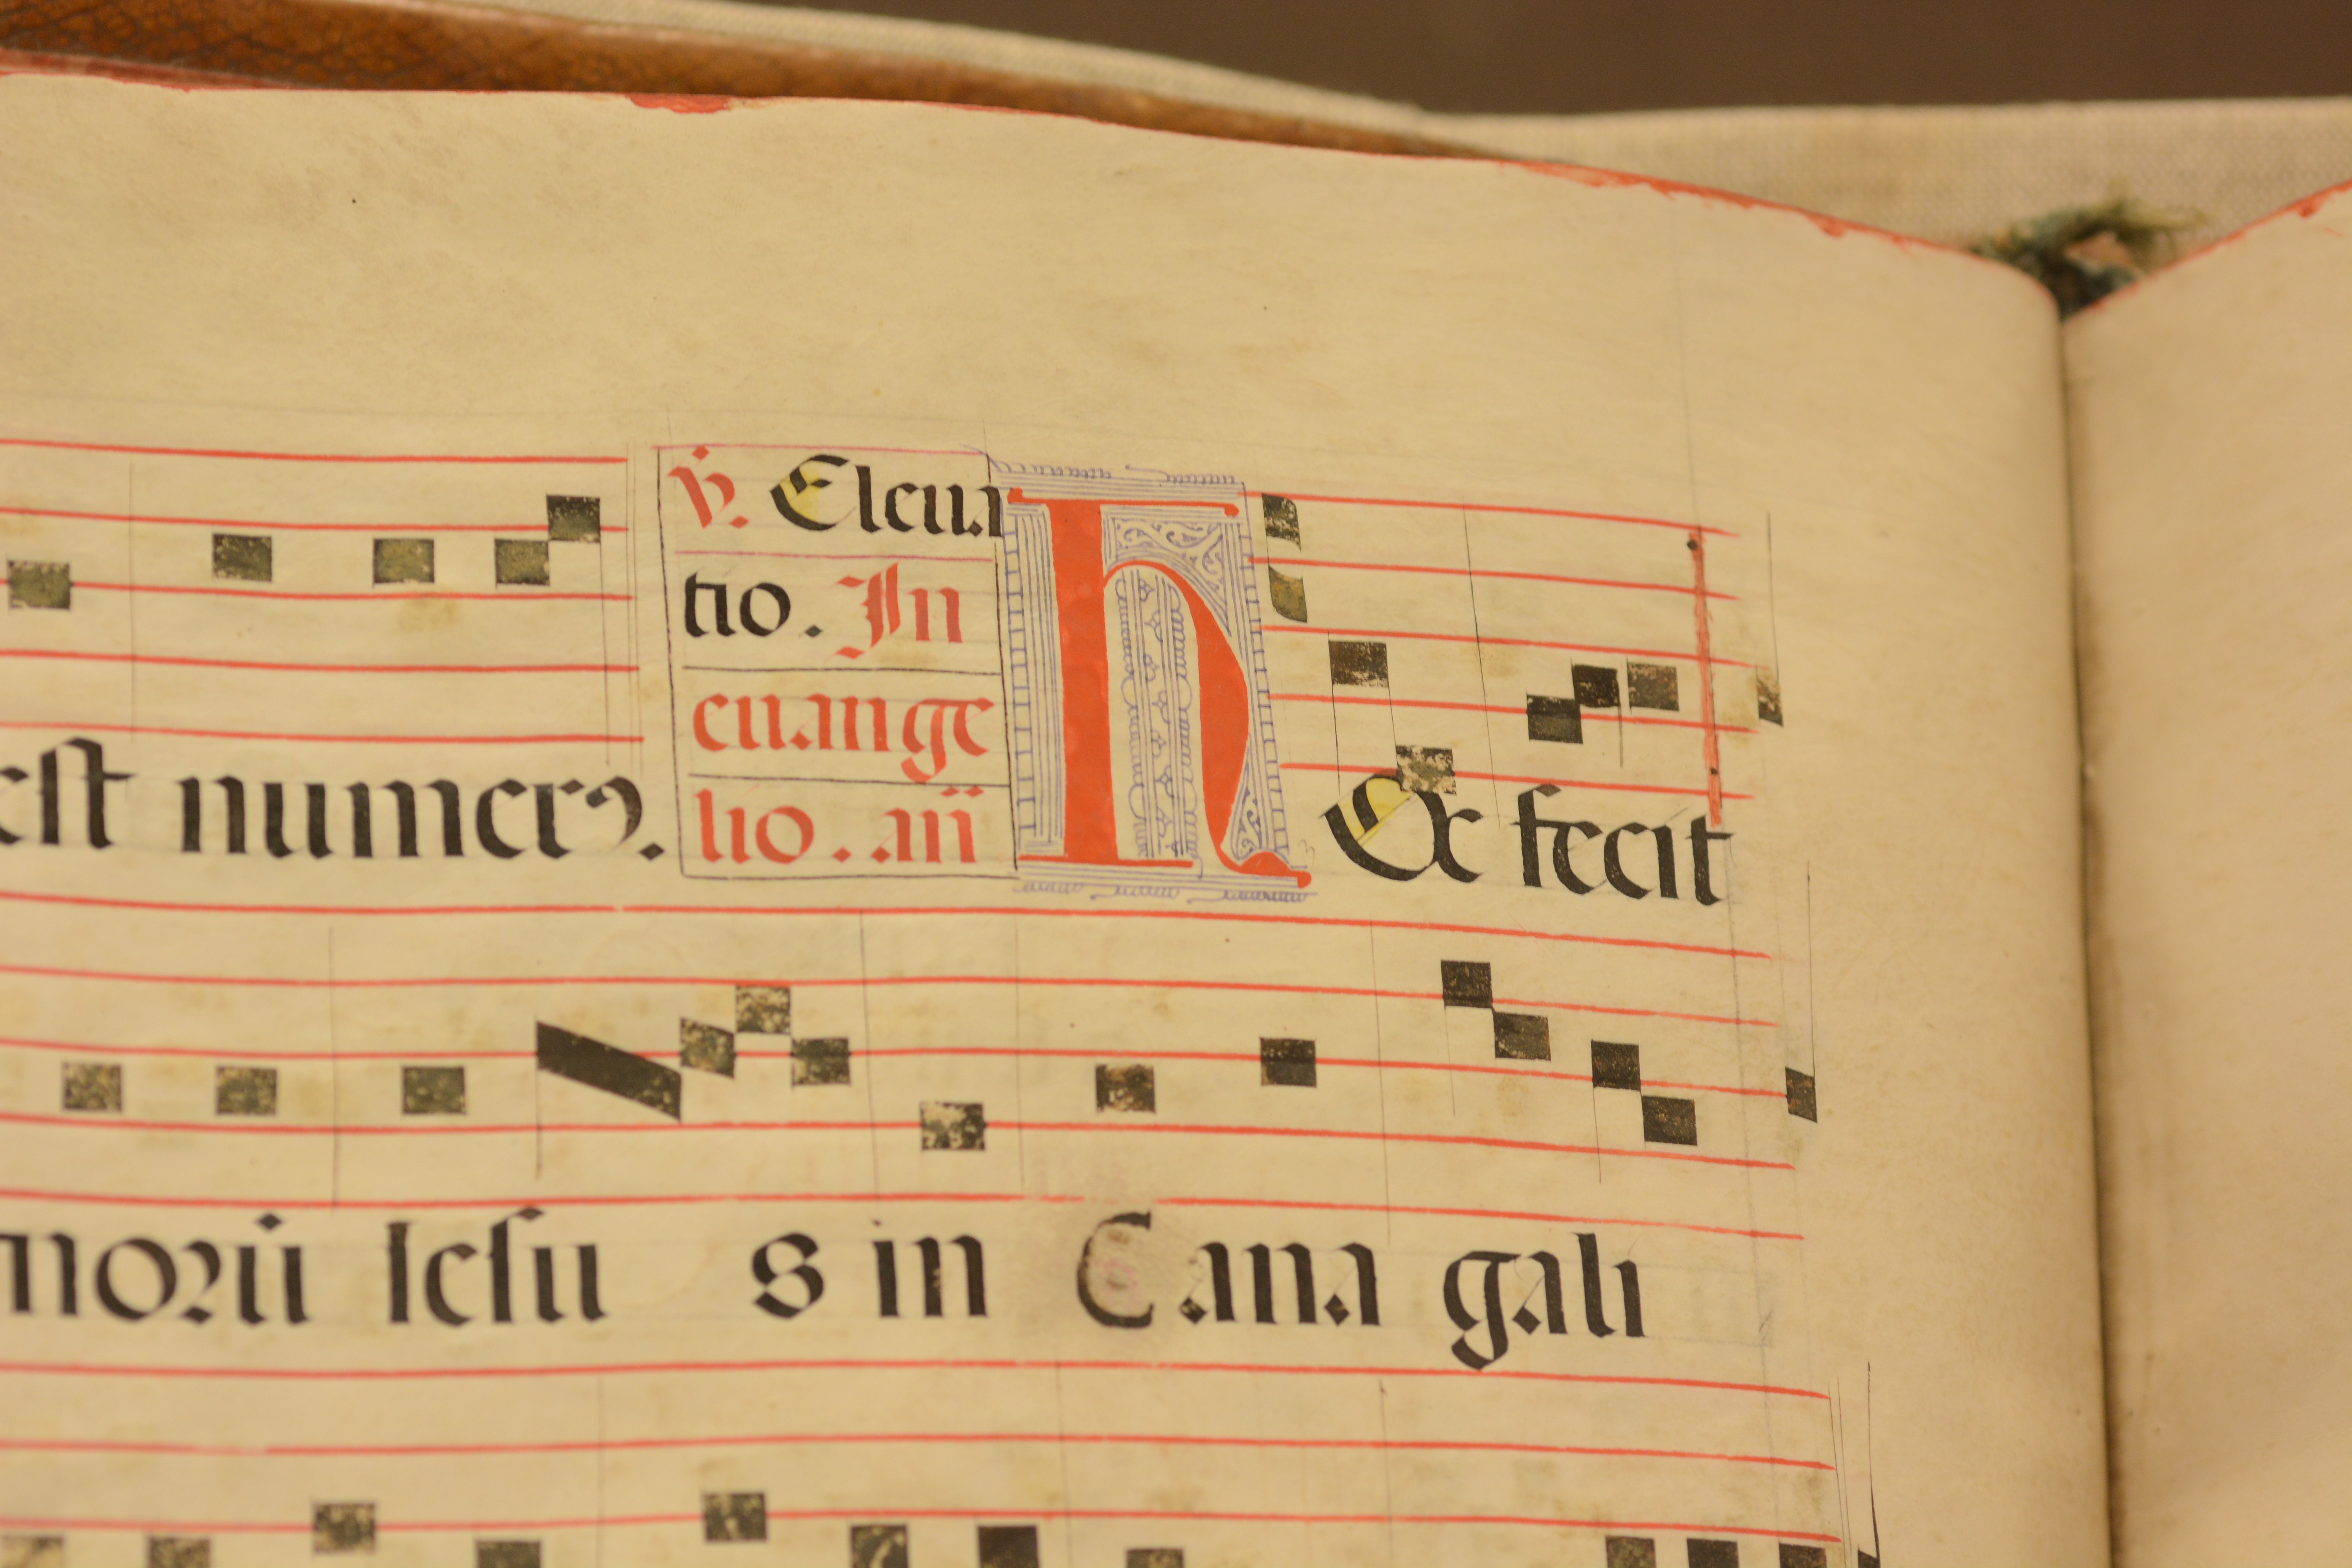 est numerꝯ.
℣. Eleua
tio. In
euange
lio. an̄
hEc fecit
norū Iesu s in Cana gali